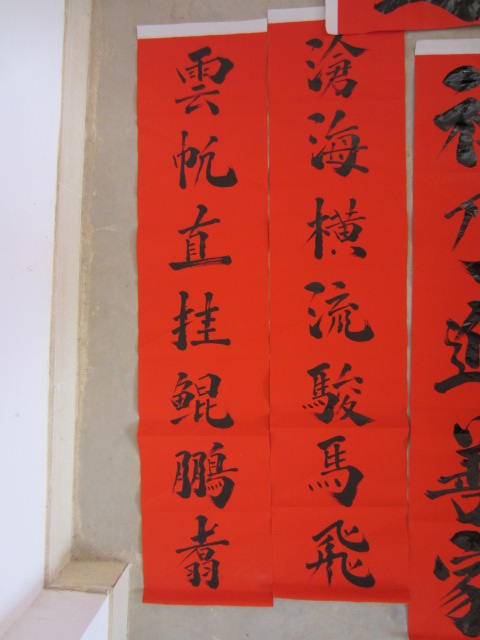 滄海橫流駿馬飛
雲帆直挂鯤鵬翥
進善家